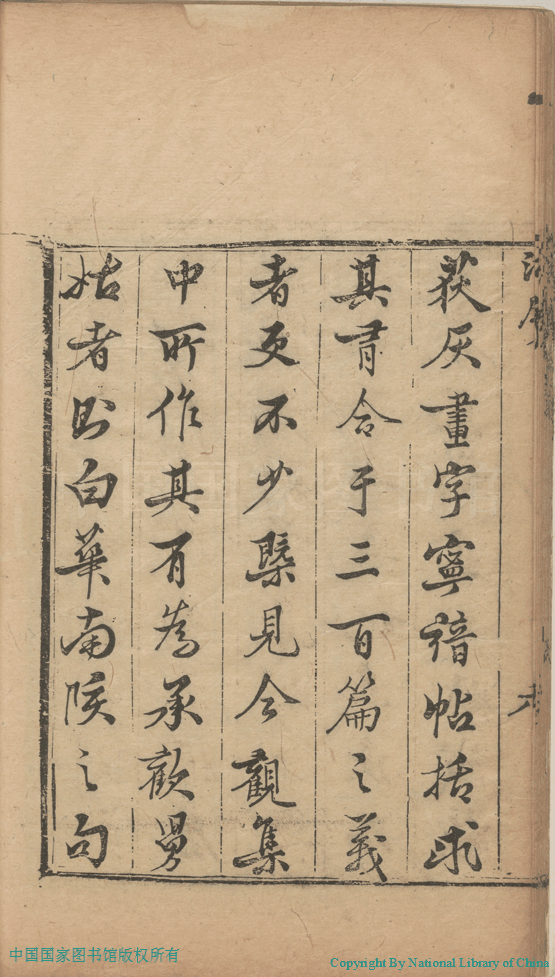 荻灰畫字寧諳帖括求
其有合于三百篇之義
者更不少槩見今觀集
中所作其有為承歡舅
姑者則白華南陔之句
中国国家图书馆版权所有
Copyright By National Library of China